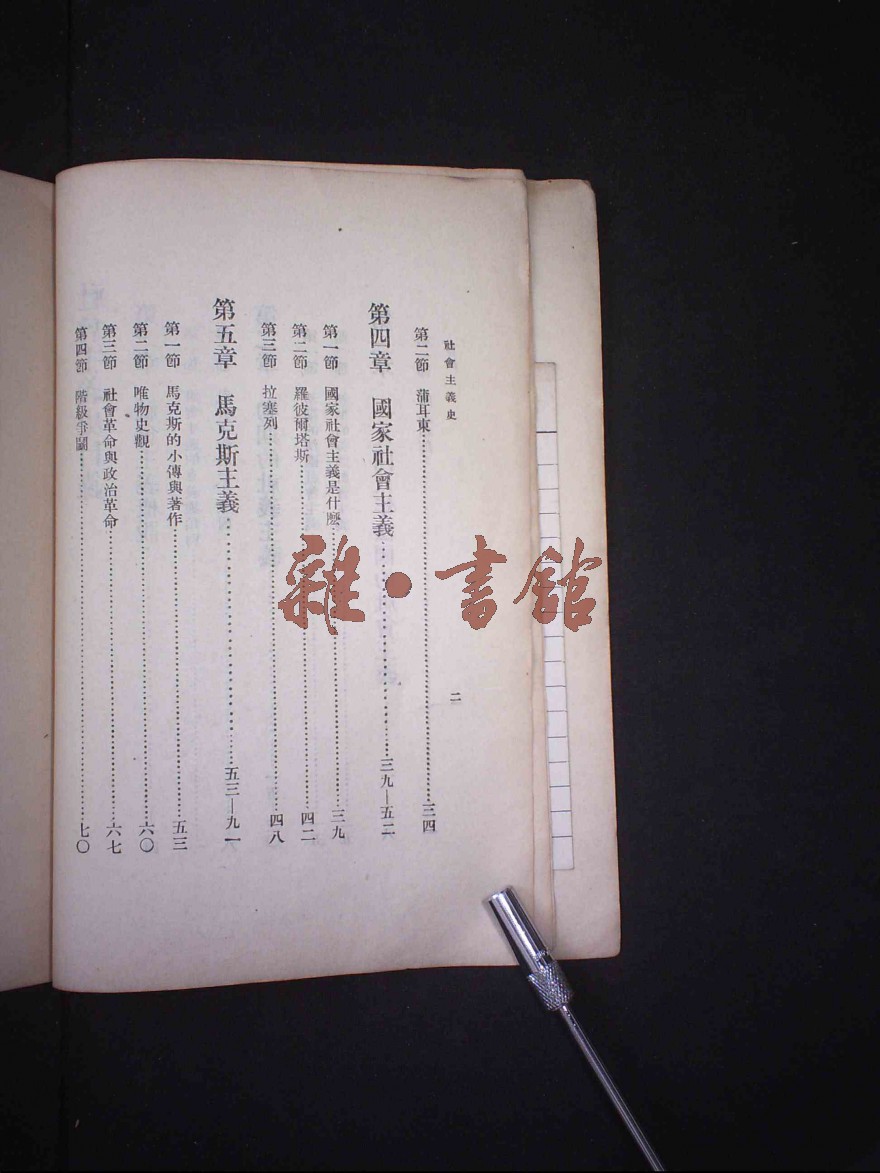 社會主義史
二
第二節 蒲耳東……三四
第四章 國家社會主義……三九—五二
第一節 國家社會主義是什麽……三九
第二節 羅彼爾塔斯……四二
第三節 拉塞列……四八
第五章 馬克斯主義……五三—九一
第一節 馬克斯的小傳與著作……五三
第二節 唯物史觀……六〇
第三節 社會革命與政治革命……六七
第四節 階級爭鬭……七〇
雜·書館